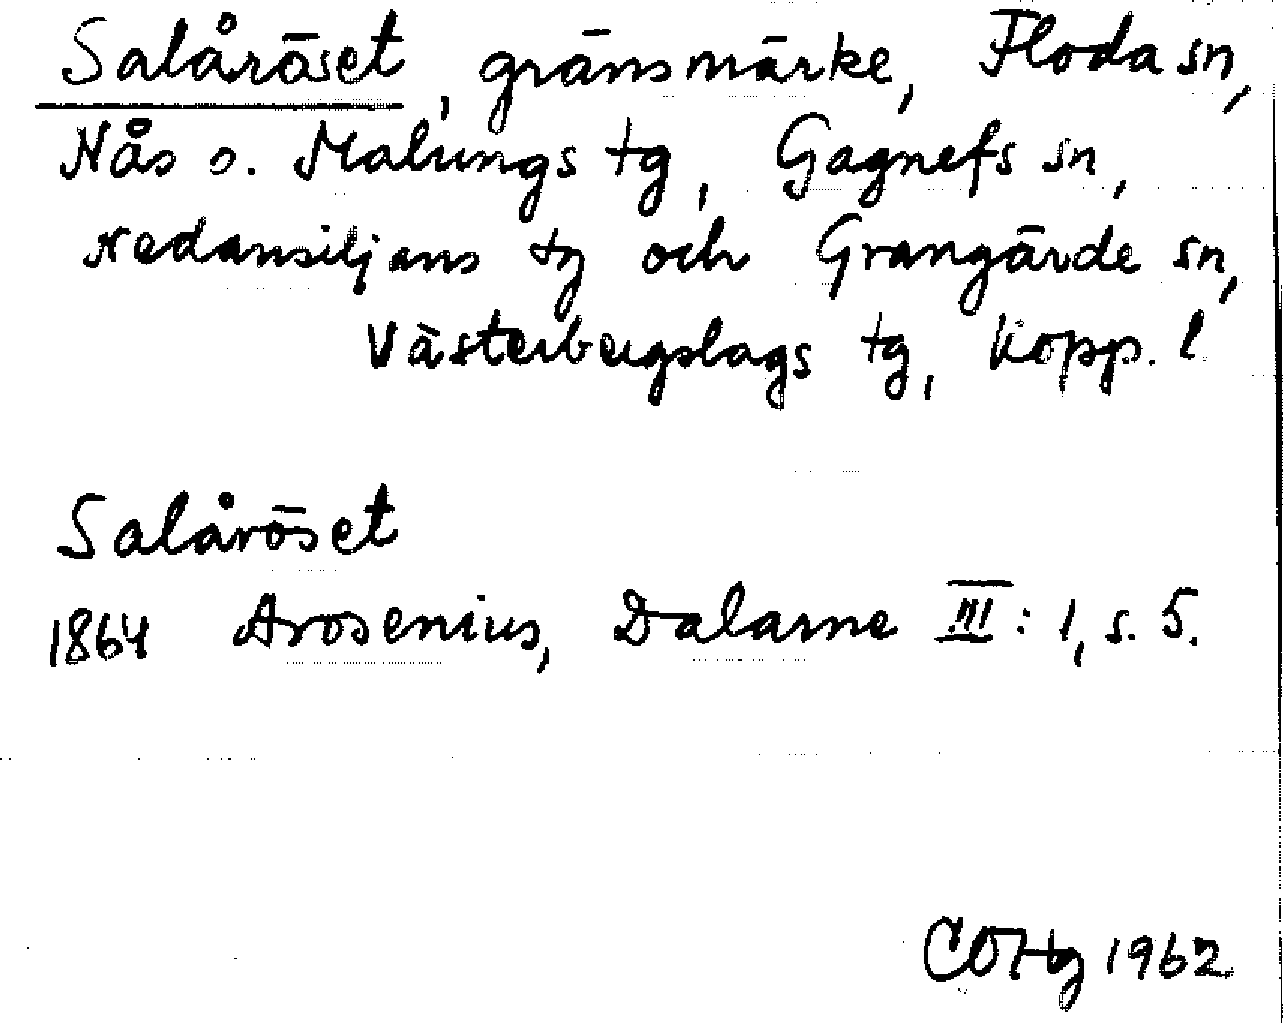 Salåröset, gränsmärke, Floda sn,
Nås o. Malungs tg, Gagnefs sn,
Nedansiljans tg och Grangärde sn,
Västerbergslags tg, Kopp. l.
Salåröset
1864 Arosenius, Dalarne III: 1, s. 5.
COHg 1962